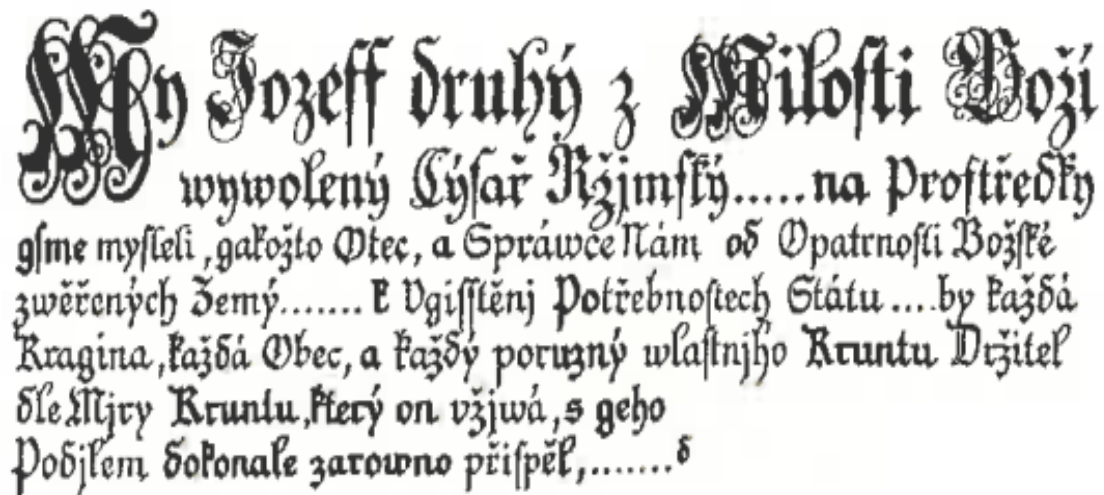 My Jozeff druhý z Miloſti Boží
wywolený Cýſař Ržjmſký.....na Proſtředky
gſme myſleli, gakožto Otec, a Spráwce Nám od Opatrnoſti Božſké
zwěřených Zemý....... k Vgiſſtěnj Potřebnoſtech Státu....by každá
Kragina, každá Obec, a každý poruzný wlaſtnjho Kruntu Držitel
dle Mjry Kruntu, který on vžjwá, s geho
Podjlem dokonale zarowno přiſpěl,.......d